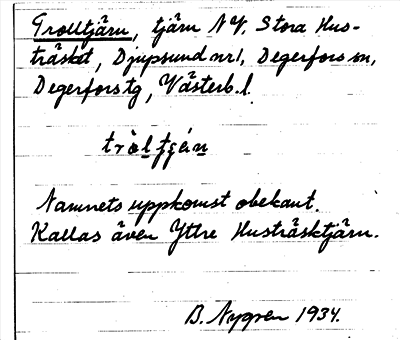 Trolltjärn, tjärn NV. Stora Hus-
träsket, Djupsund nr 1, Degerfors sn,
Degerfors tg, Västerb. l.
Namnets uppkomst obekant.
Kallas även Yttre Husträsktjärn.
B. Nygren 1934.